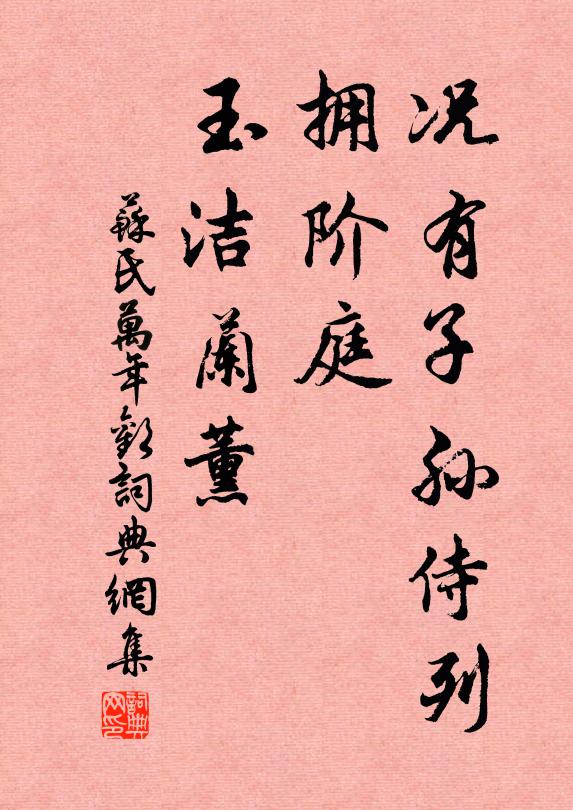 况有子孙侍列
拥阶庭
玉洁蘭薰
蘇氏萬年歡詞典網集
詞典网印